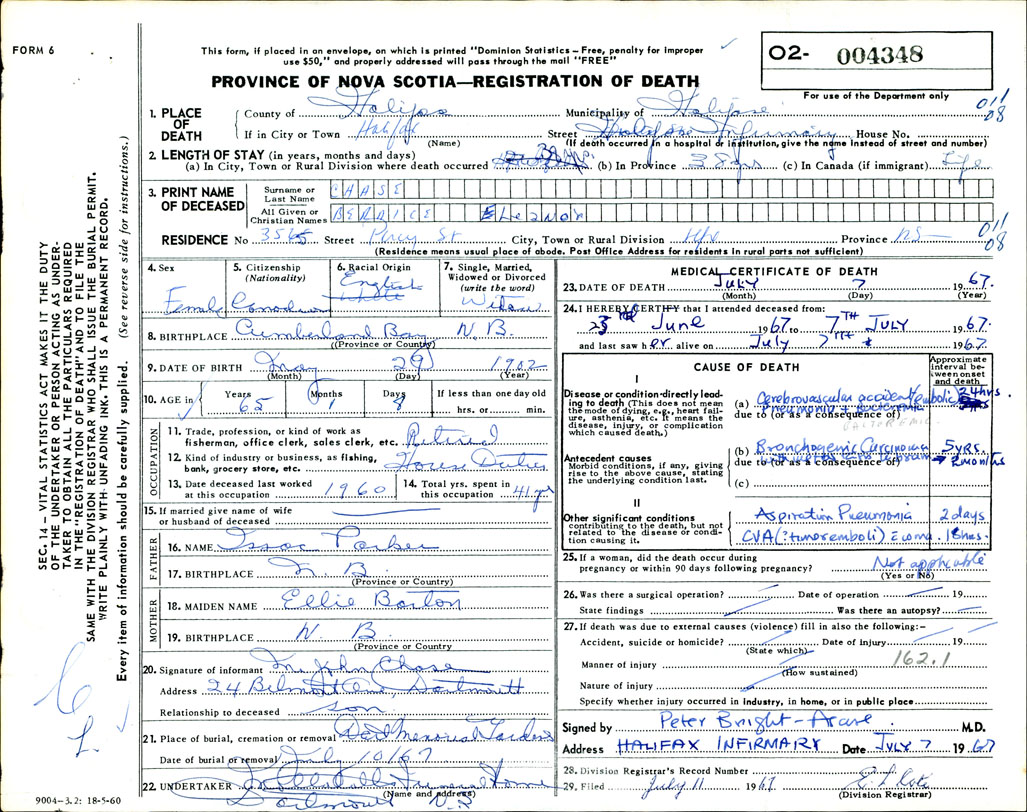 FORM 6
This form, if placed in an envelope, on which is printed "Dominion Statistics – Free, penalty for improper
use $50," and properly addressed will pass through the mail "FREE"
PROVINCE OF NOVA SCOTIA—REGISTRATION OF DEATH
02- 004348
For use of the Department only
SEC. 14 – VITAL STATISTICS ACT MAKES IT THE DUTY
OF THE UNDERTAKER OR PERSON ACTING AS UNDER-
TAKER TO OBTAIN ALL THE PARTICULARS REQUIRED
IN THE "REGISTRATION OF DEATH" AND TO FILE THE
SAME WITH THE DIVISION REGISTRAR WHO SHALL ISSUE THE BURIAL PERMIT.
WRITE PLAINLY WITH UNFADING INK. THIS IS A PERMANENT RECORD.
Every item of information should be carefully supplied. (See reverse side for instructions.)
1. PLACE OF DEATH
County of Halifax Municipality of Halifax 011/08
If in City or Town Halifax Street Halifax Infirmary House No.
(Name) (If death occurred in a hospital or institution, give the name instead of street and number)
2. LENGTH OF STAY (in years, months and days)
(a) In City, Town or Rural Division where death occurred (b) In Province 38 yrs (c) In Canada (if immigrant) Life
3. PRINT NAME OF DECEASED
Surname or Last Name CHASE
All Given or Christian Names BERNICE Eleanor
011/08
RESIDENCE No 3565 Street Percy St City, Town or Rural Division Hfx Province NS
(Residence means usual place of abode. Post Office Address for residents in rural parts not sufficient)
4. Sex Female
5. Citizenship (Nationality) Canadian
6. Racial Origin English White
7. Single, Married, Widowed or Divorced (write the word) Widow
8. BIRTHPLACE Cumberland Bay N.B.
(Province or Country)
9. DATE OF BIRTH May 29 1902
(Month) (Day) (Year)
10. AGE in Years 65 Months 1 Days 8 If less than one day old hrs. or min.
OCCUPATION
11. Trade, profession, or kind of work as
fisherman, office clerk, sales clerk, etc. Retired
12. Kind of industry or business, as fishing,
bank, grocery store, etc. House Duties
13. Date deceased last worked at this occupation 1960 14. Total yrs. spent in this occupation 41 yr
15. If married give name of wife
or husband of deceased
FATHER
16. NAME Isaac Parker
17. BIRTHPLACE N. B
(Province or Country)
MOTHER
18. MAIDEN NAME Ellie Barton
19. BIRTHPLACE N. B
(Province or Country
20. Signature of informant Mr John Chase
Address 24 Belmont Ave, Dartmouth
Relationship to deceased son
21. Place of burial, cremation or removal Dart Memorial Gardens
Date of burial or removal July 10/67
22. UNDERTAKER Funeral Home
(Name and address)
Dartmouth N.S
9004-3.2: 18-5-60
MEDICAL CERTIFICATE OF DEATH
23. DATE OF DEATH JULY 7 1967.
(Month) (Day) (Year)
24. I HEREBY CERTIFY that I attended deceased from:
June 1967 to 7TH JULY 1967.
and last saw her alive on July 7TH 1967.
CAUSE OF DEATH
Approximate interval between onset and death
I
Disease or condition directly leading to death (This does not mean
the mode of dying, e.g., heart failure, asthenia, etc. It means the
disease, injury, or complication which caused death.)
(a) Cerebrovascular accident/embolic 24hrs
Pneumonia +
due to (or as a consequence of)
BACTEREMIC
Antecedent causes
Morbid conditions, if any, giving rise to the above cause, stating
the underlying condition last.
(b) Bronchogenic Carcinoma 5 yrs.
due to (or as a consequence of) → 2 months
(c)
II
Other significant conditions
contributing to the death, but not related to the disease or condition causing it.
Aspiration Pneumonia 2 days
CVA (?tumor emboli) c coma. 18hrs.
25. If a woman, did the death occur during
pregnancy or within 90 days following pregnancy? Not applicable
(Yes or No)
26. Was there a surgical operation? Date of operation 19
State findings Was there an autopsy?
27. If death was due to external causes (violence) fill in also the following:–
Accident, suicide or homicide? Date of injury 19
(State which)
Manner of injury 162.1
(How sustained)
Nature of injury
Specify whether injury occurred in industry, in home, or in public place
Signed by Peter Bright-Asare M.D.
Address HALIFAX INFIRMARY Date JULY 7 1967
28. Division Registrar's Record Number
29. Filed July 11 1967
(Division Registrar)